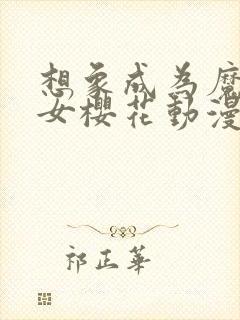 想象成为魔
女樱花動漫
祁正華